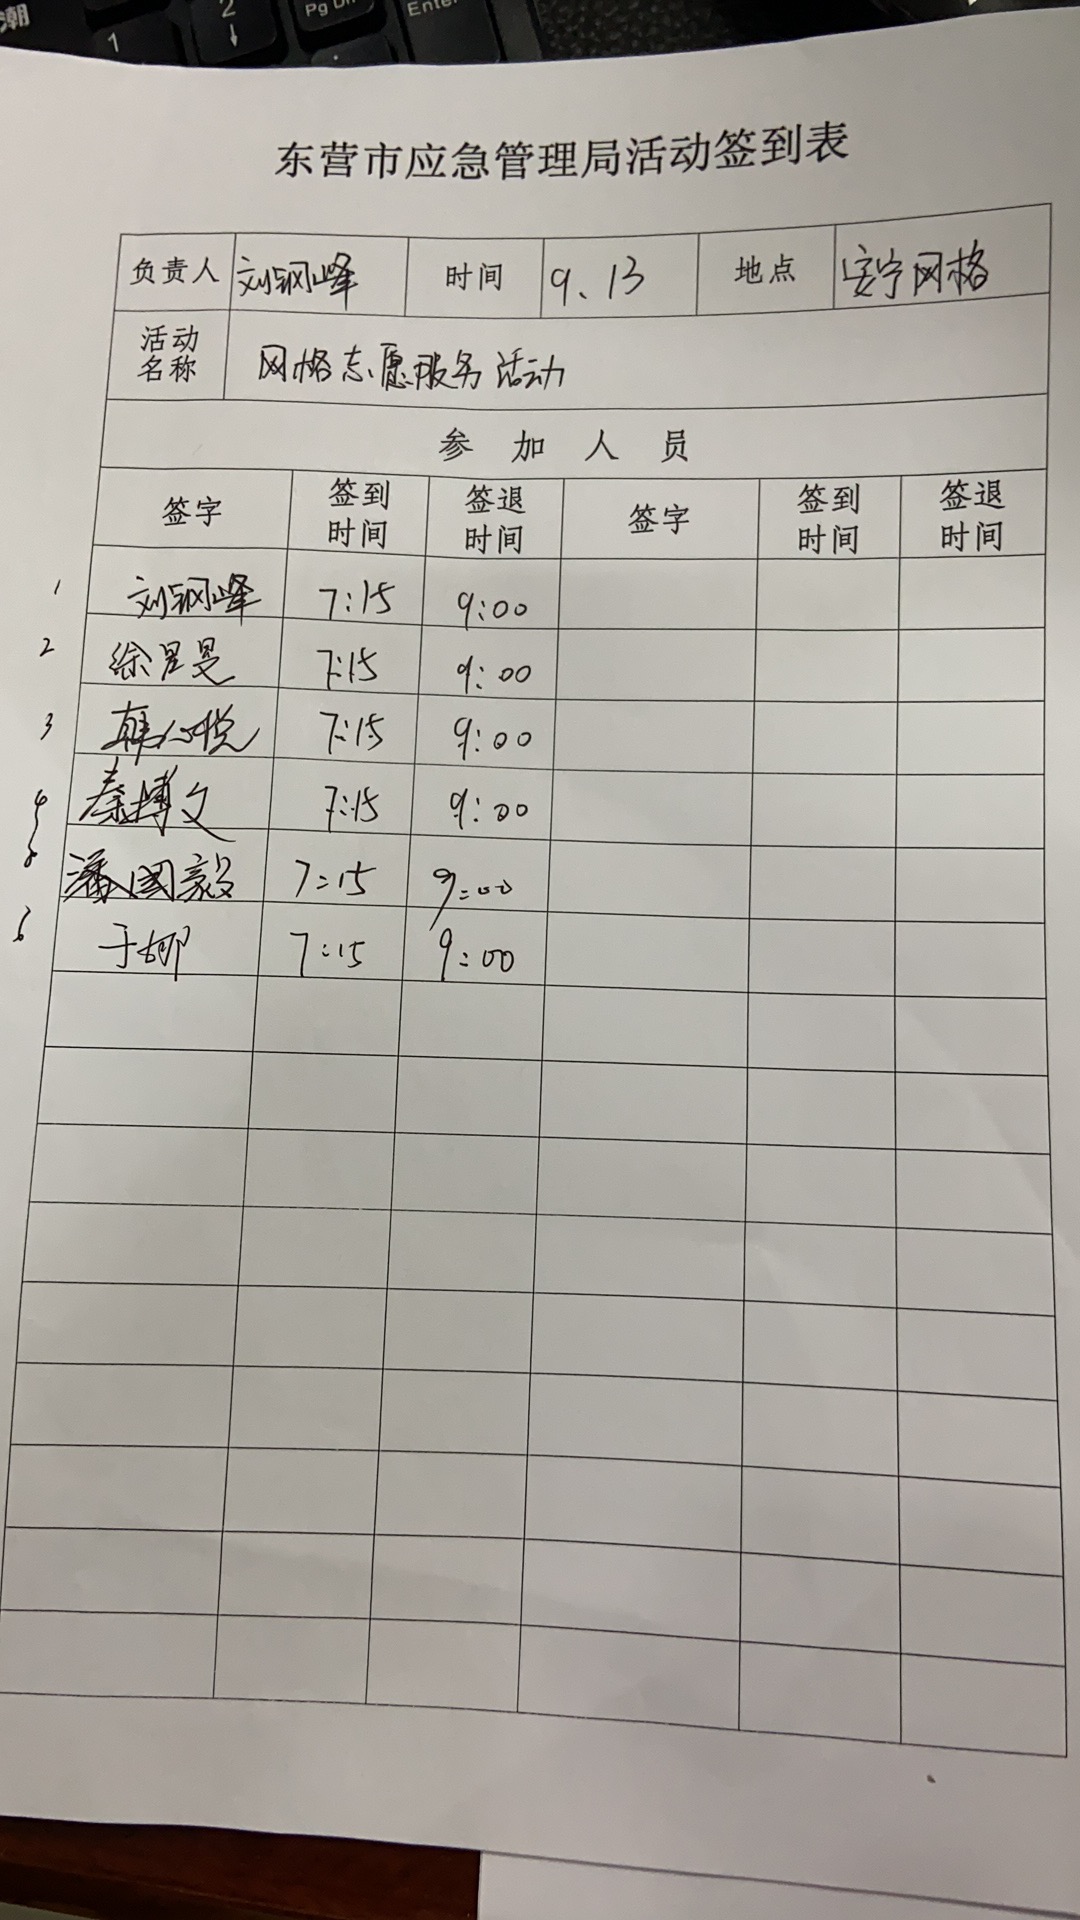 潮
1
2
↓
Pg Dn
Enter
东营市应急管理局活动签到表
负责人 刘钢峰 时间 9.13 地点 安宁网格
活动名称 网格志愿服务活动
参加人员
签字 签到时间 签退时间 签字 签到时间 签退时间
1 刘钢峰 7:15 9:00
2 徐星旻 7:15 9:00
3 韩心悦 7:15 9:00
4 秦博文 7:15 9:00
5 潘国毅 7:15 9:00
6 于娜 7:15 9:00